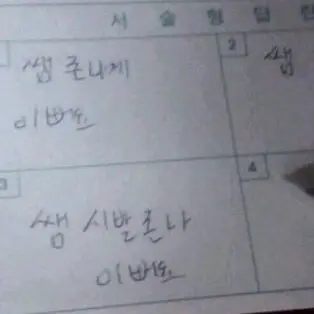 서 술 형 답 란
쌤 존나게
이뻐요
2
쌤
3
쌤 시발 존나
이뻐요
4